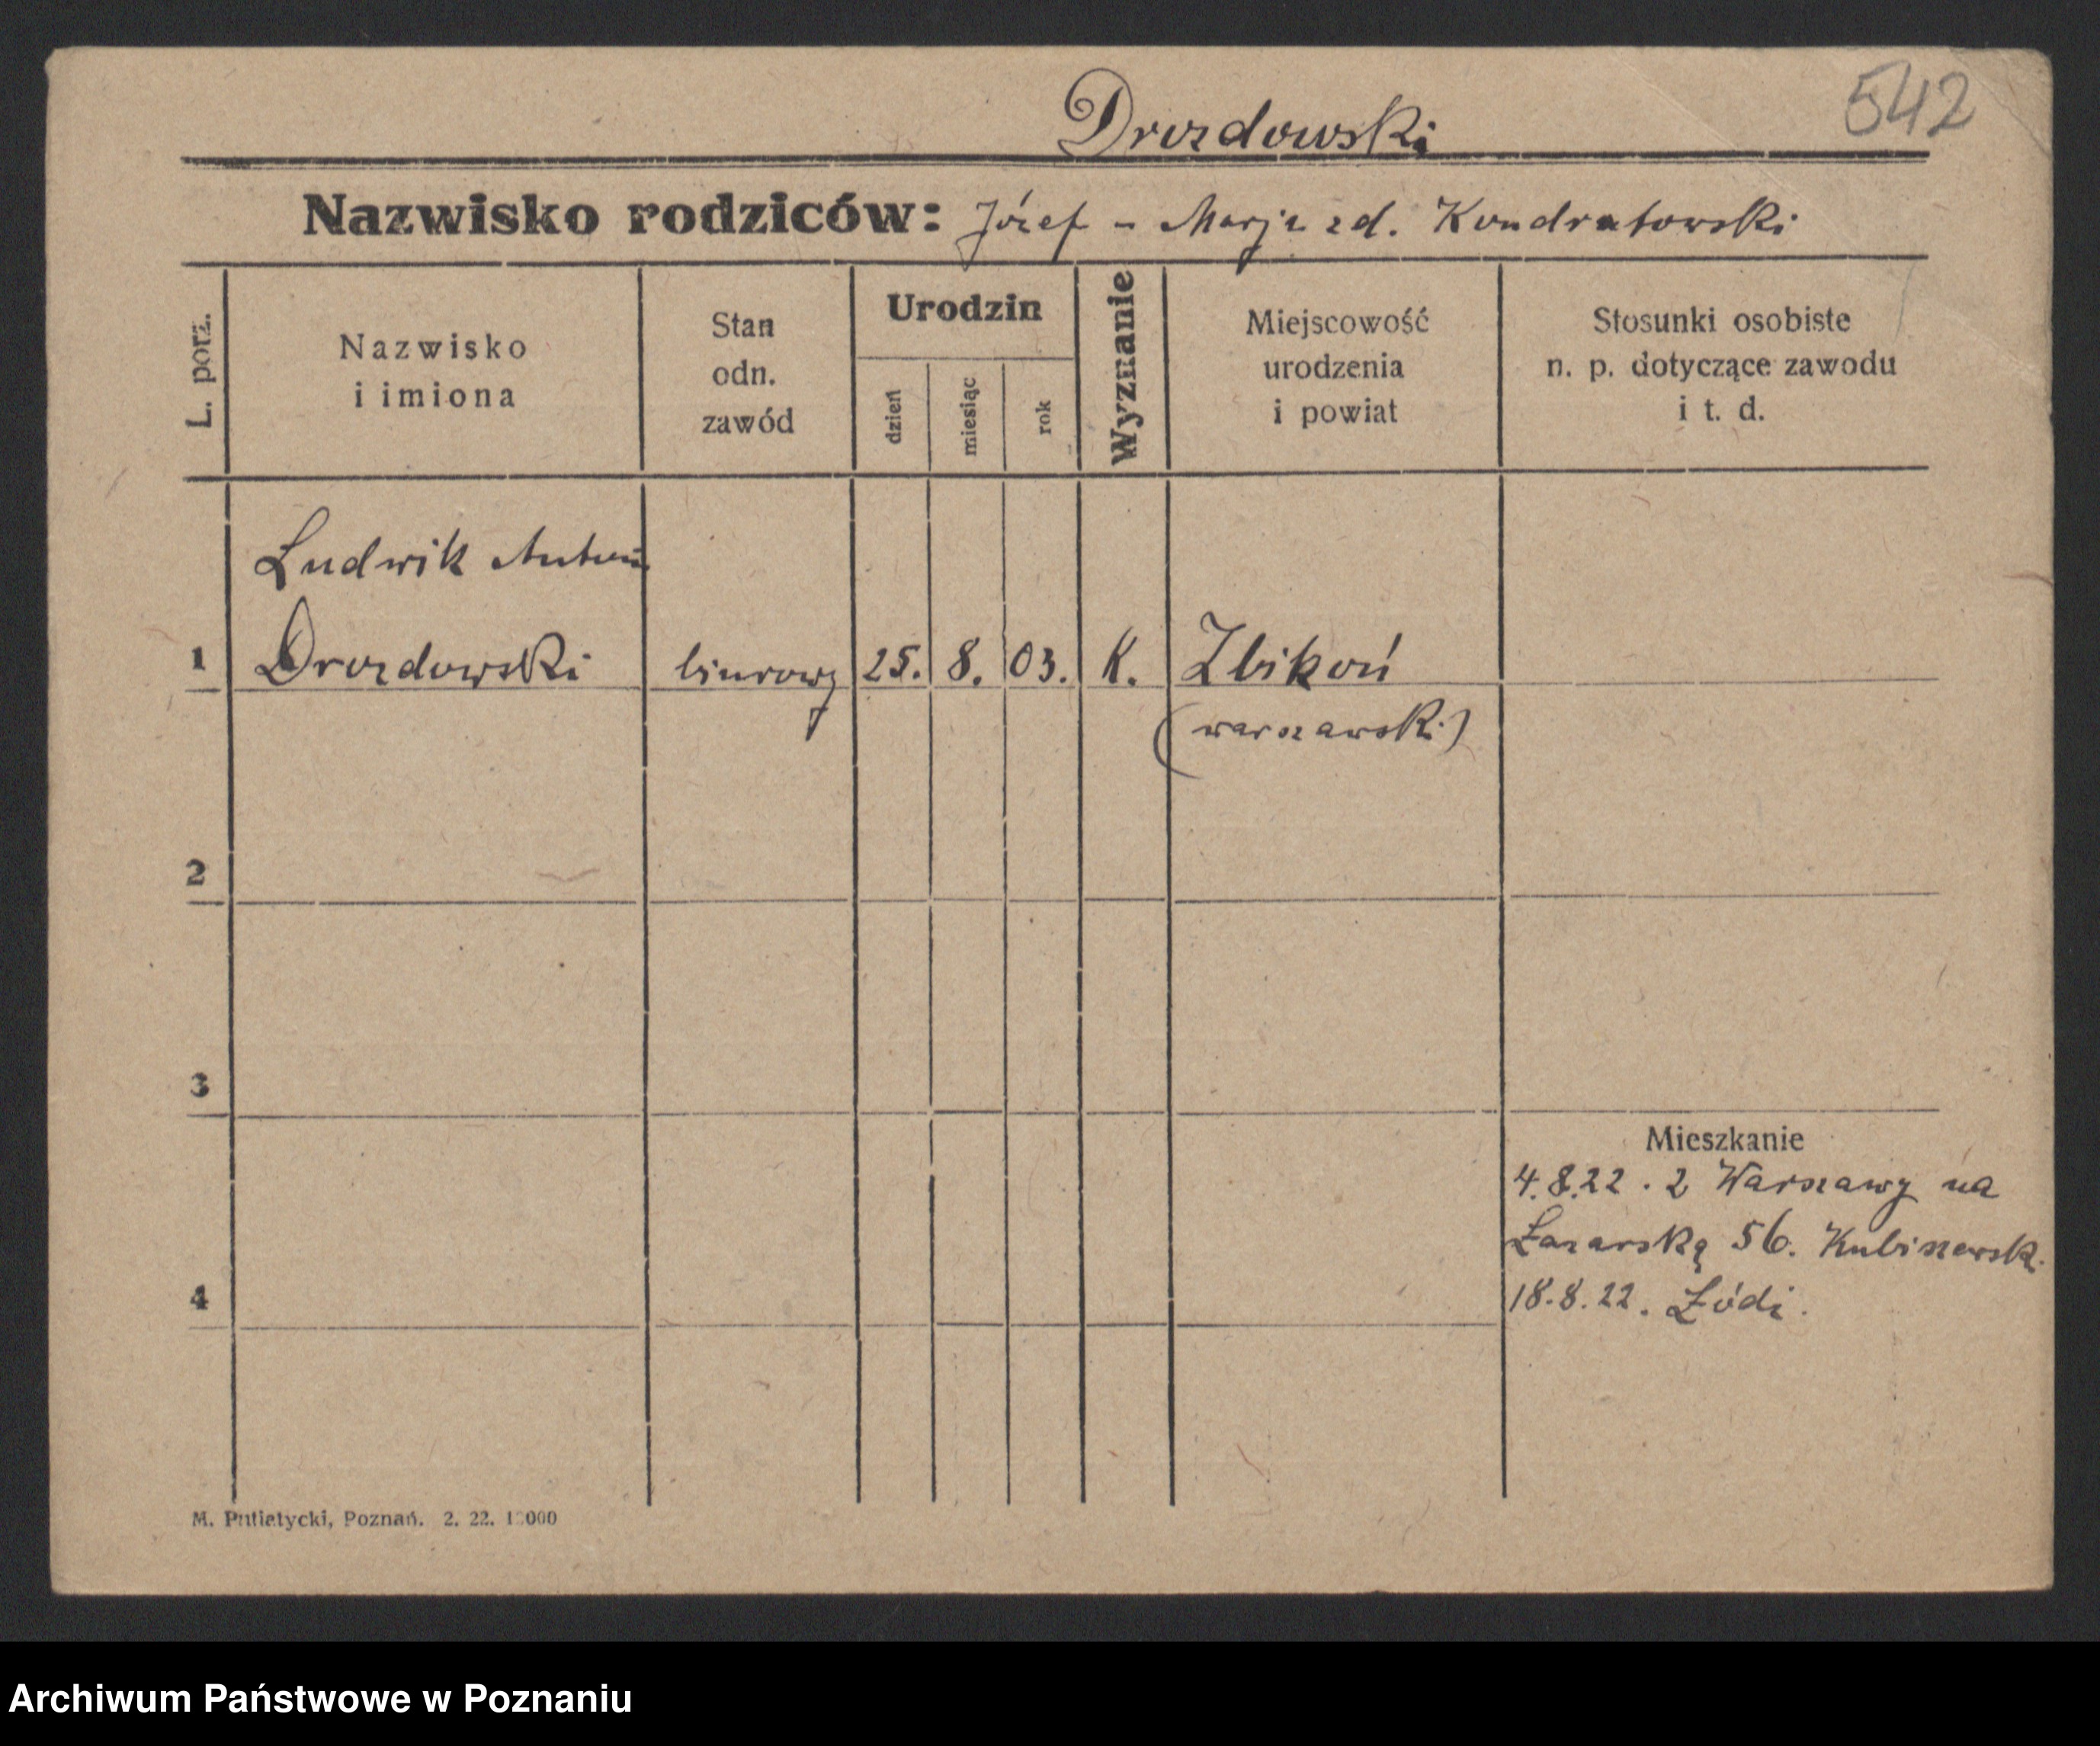 542
Drozdowski
Nazwisko rodziców: Józef - Marja zd. Kondratowski
L. porz.
Nazwisko
i imiona
Stan
odn.
zawód
Urodzin
dzień
miesiąc
rok
Wyznanie
Miejscowość
urodzenia
i powiat
Stosunki osobiste
n. p. dotyczące zawodu
i t. d.
Ludwik Antoni
1 Drozdowski biurowy 25. 8. 03. K. Zbikoń
(warszawski)
2
3
Mieszkanie
4.8.22. z Warszawy na
Łazarską 56. Kubiszewsk.
4 18.8.22. Łódź.
M. Putiatycki, Poznań. 2. 22. 000
Archiwum Państwowe w Poznaniu